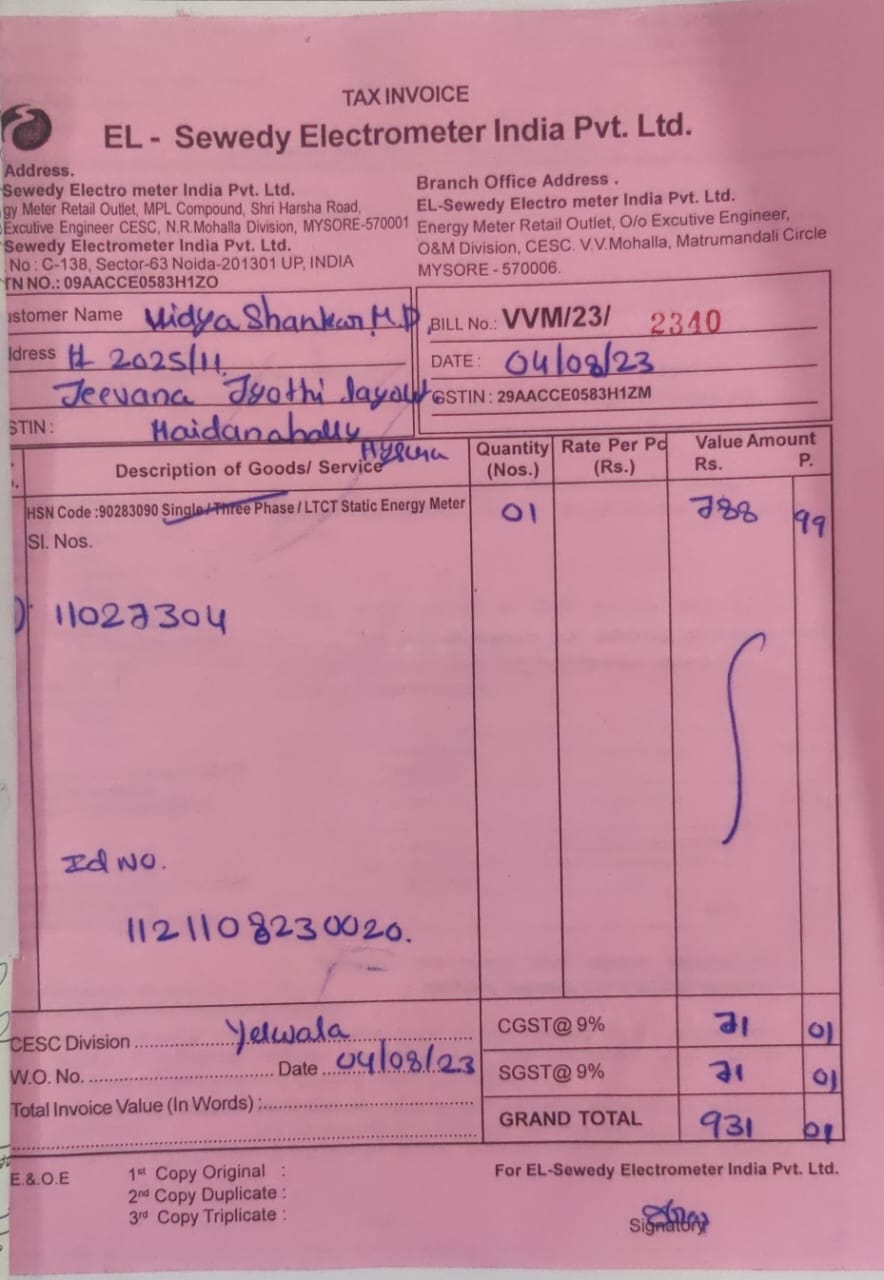 TAX INVOICE
EL - Sewedy Electrometer India Pvt. Ltd.
Address.
Sewedy Electro meter India Pvt. Ltd.
gy Meter Retail Outlet, MPL Compound, Shri Harsha Road,
Excutive Engineer CESC, N.R.Mohalla Division, MYSORE-570001
Sewedy Electrometer India Pvt. Ltd.
No : C-138, Sector-63 Noida-201301 UP, INDIA
TN NO.: 09AACCE0583H1ZO
Branch Office Address .
EL-Sewedy Electro meter India Pvt. Ltd.
Energy Meter Retail Outlet, O/o Excutive Engineer,
O&M Division, CESC. V.V.Mohalla, Matrumandali Circle
MYSORE - 570006.
ustomer Name Vidya Shankar M.D
ddress # 2025/11.
Jeevana Jyothi layout
STIN : Haidanahally
Mysuru
BILL No.: VVM/23/ 2340
DATE : 04/08/23
GSTIN : 29AACCE0583H1ZM
Description of Goods/ Service
Quantity (Nos.)
Rate Per Pc (Rs.)
Value Amount
Rs. P.
HSN Code :90283090 Single / Three Phase / LTCT Static Energy Meter 01 788 99
Sl. Nos.
11027304
Id NO.
1121108230020.
CESC Division Yelwala
W.O. No. Date 04/08/23
Total Invoice Value (In Words) :
CGST@ 9% 71 01
SGST@ 9% 71 01
GRAND TOTAL 931 01
E.&.O.E
1st Copy Original :
2nd Copy Duplicate :
3rd Copy Triplicate :
For EL-Sewedy Electrometer India Pvt. Ltd.
Signatory